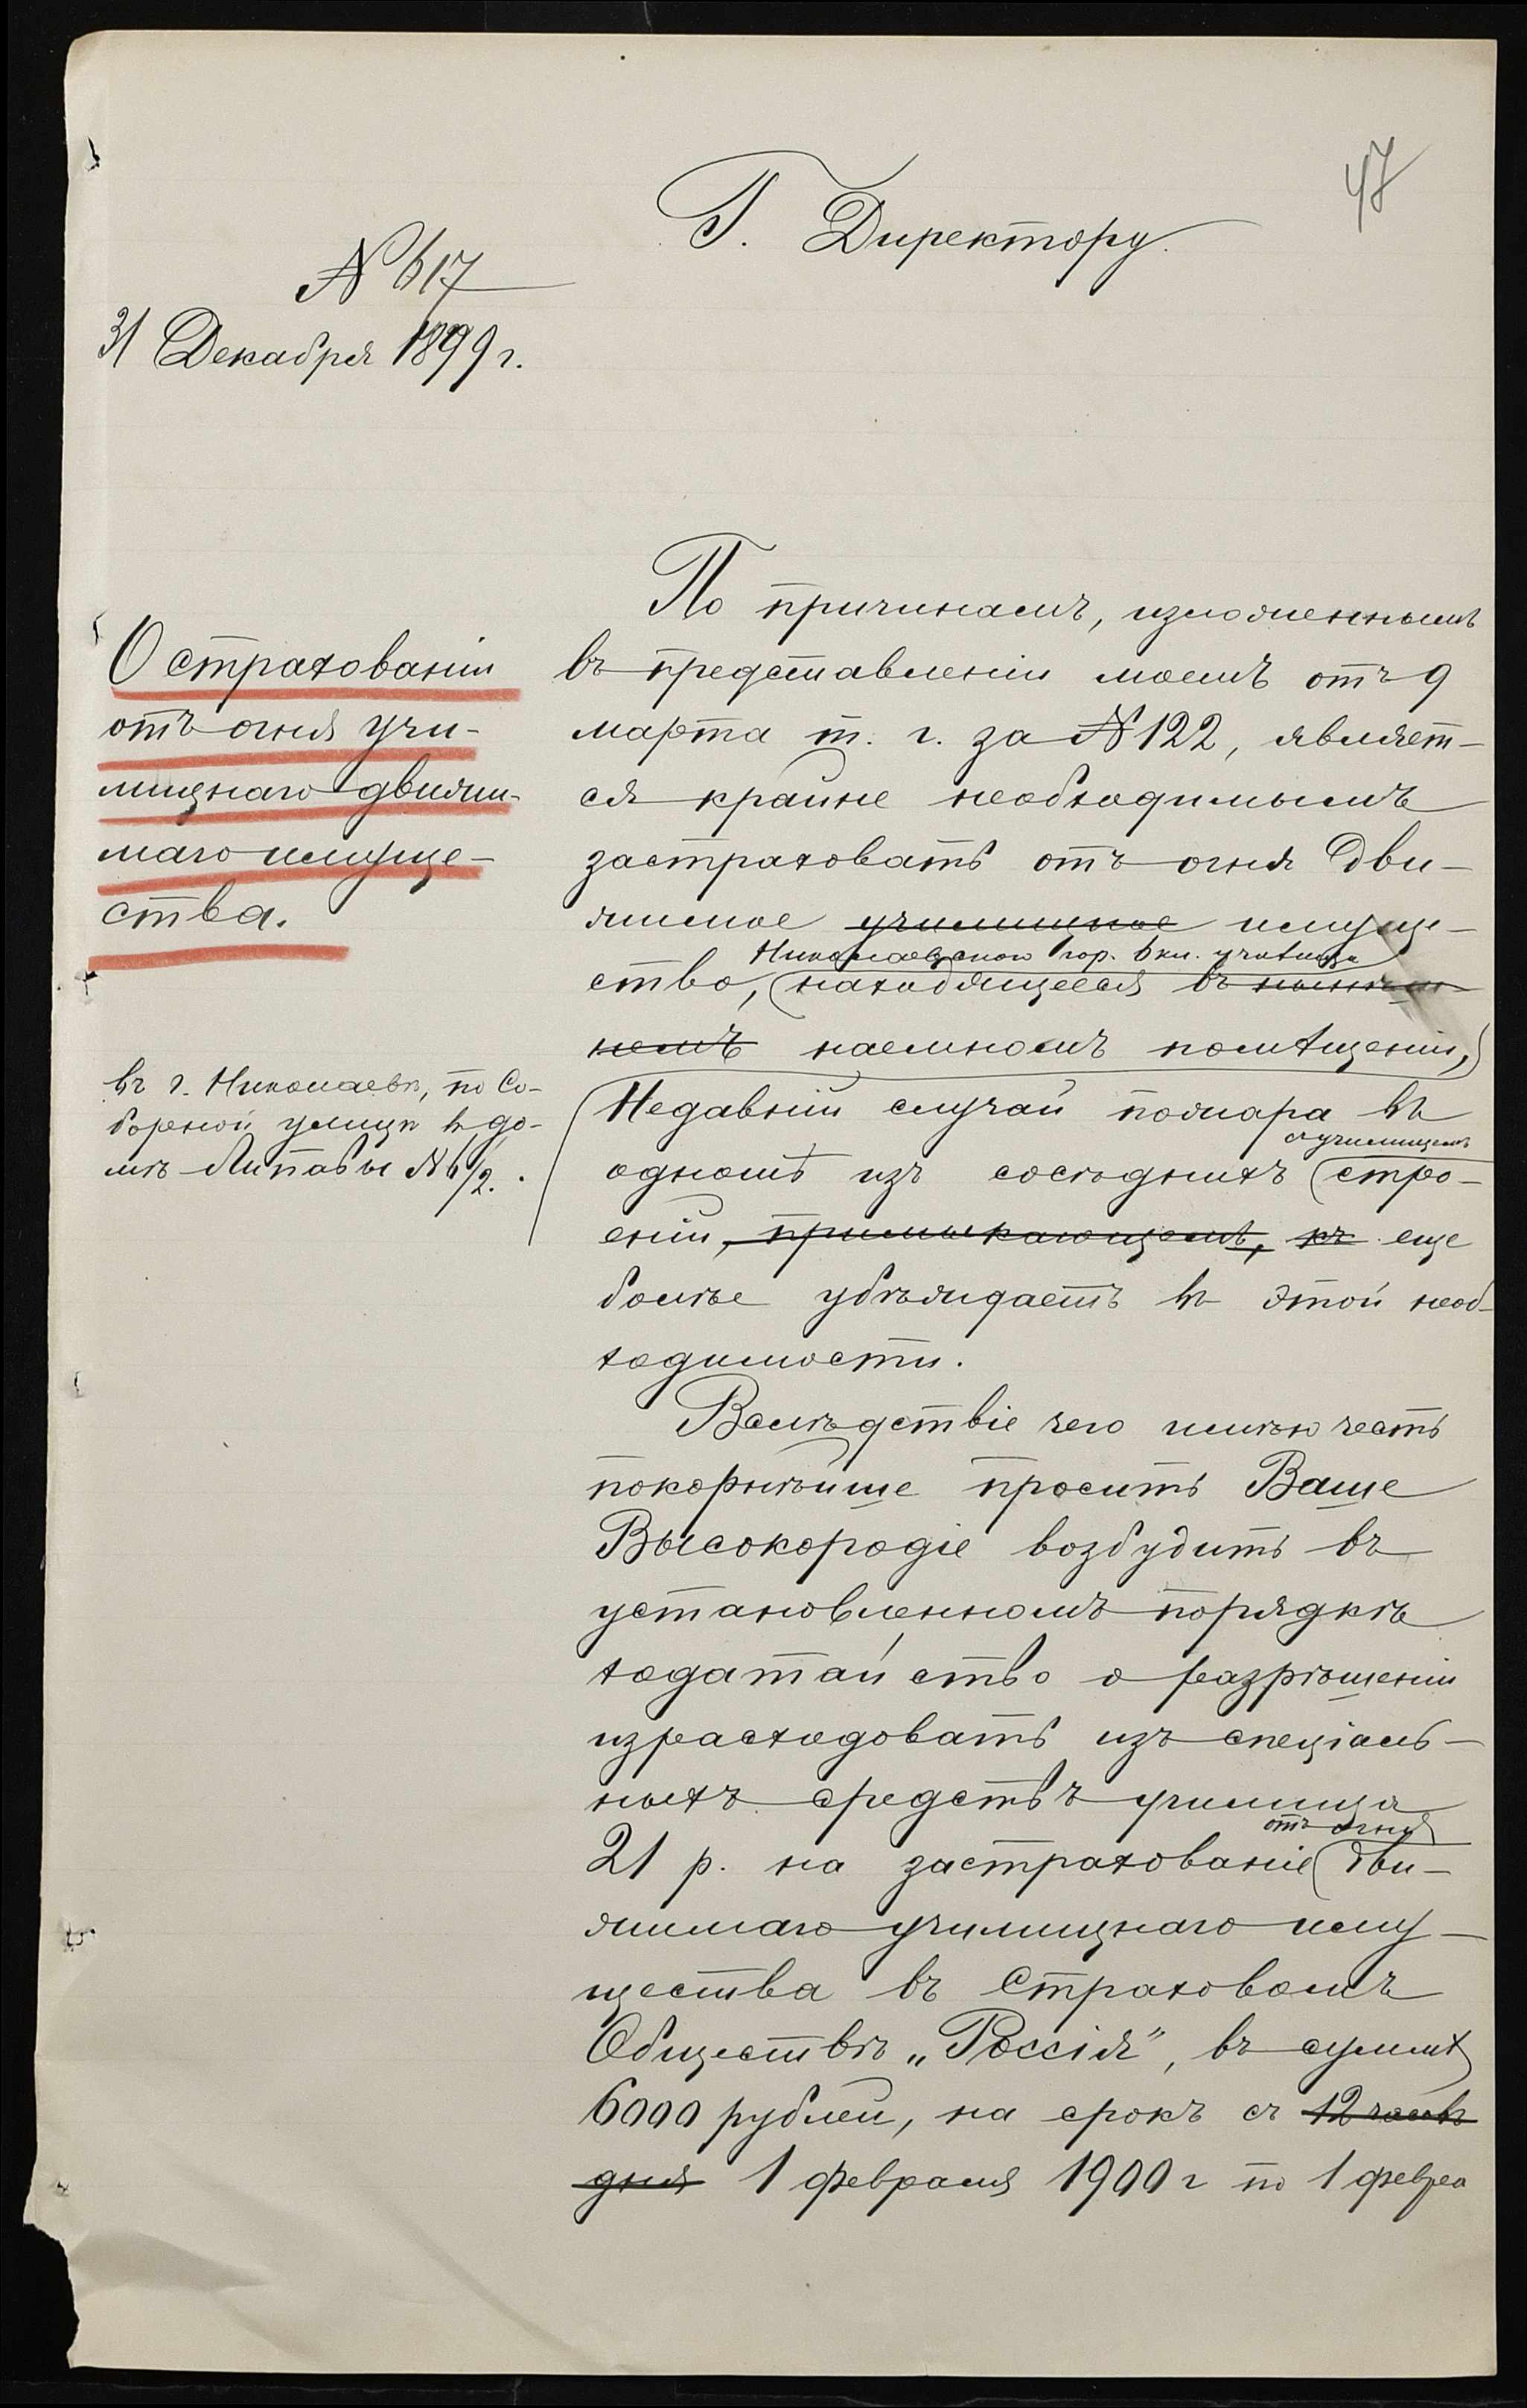 47
Г. Директору.
№ 617
31 Декабря 1899 г.
О страхованіи
отъ огня учи-
лищнаго движи-
маго имуще-
ства.
въ г. Николаевѣ, по Со-
борной улицѣ въ до-
мѣ Липавы № 6/2.
По причинамъ, изложеннымъ
въ представленіи моемъ отъ 9
марта т. г. за № 122, являет-
ся крайне необходимымъ
застраховать отъ огня дви-
жимое училищное имуще-
Николаевскаго 1 гор. 6 кл. училища
ство, находящееся въ нынѣш-
немъ наемномъ помѣщеніи,
Недавній случай пожара въ
съ училищемъ
одномъ изъ сосѣднихъ стро-
еній, примыкающемъ, къ еще
болѣе убѣждаетъ въ этой необ-
ходимости.
Вслѣдствіе чего имѣю честь
покорнѣйше просить Ваше
Высокородіе возбудить въ
установленномъ порядкѣ
ходатайство о разрѣшеніи
израсходовать изъ спеціаль-
ныхъ средствъ училища
отъ огня
21 р. на застрахованіе дви-
жимаго училищнаго иму-
щества въ Страховомъ
Обществѣ „Россія", въ суммѣ
6000 рублей, на срокъ съ 12 часовъ
дня 1 февраля 1900 г по 1 февра